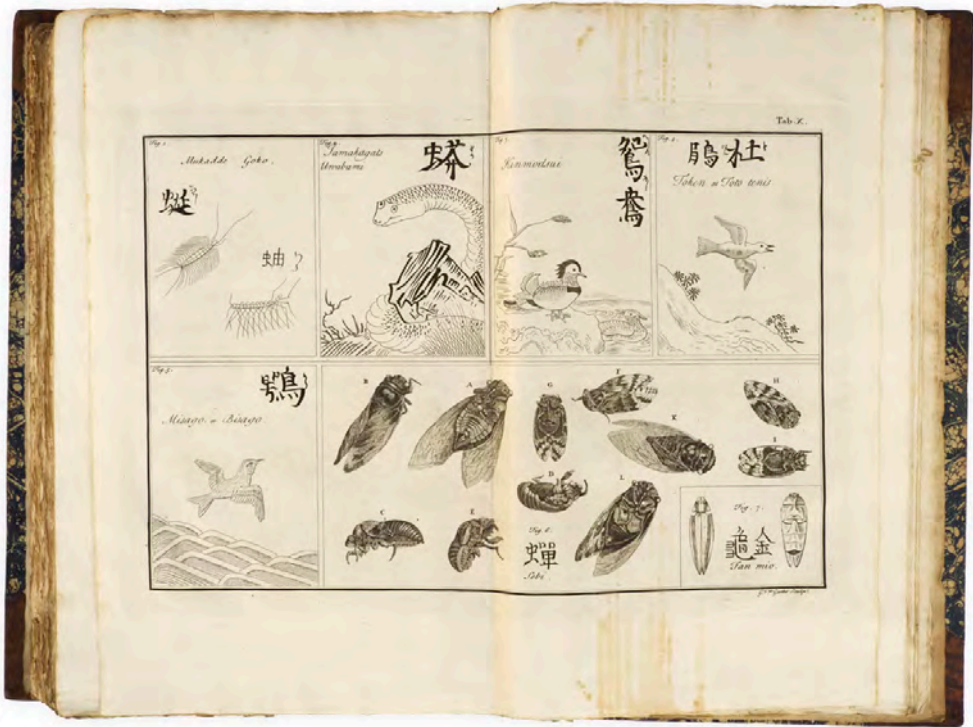 Tab. X.
Fig. 1.
Mukadde Goko.
蜒
蚰
Fig. 2.
Jamakagats
Uwabami
蟒
Fig. 3.
Kinmodsui
鴛
鴦
Fig. 4.
鵑杜
Token or Toto tenis
Fig. 5.
鶚
Misago or Bisago
B
A
G
F
H
K
I
D
L
C
E
Fig. 6.
蟬
Sebi
Fig. 7.
龜金
Fan mio.